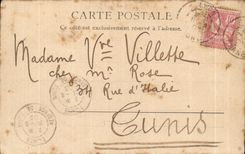 CARTE POSTALE
Ce côté est exclusivement réservé à l'adresse.
Madame Vve Villette
chez Mr Rose
34 Rue d'Italie
Tunis